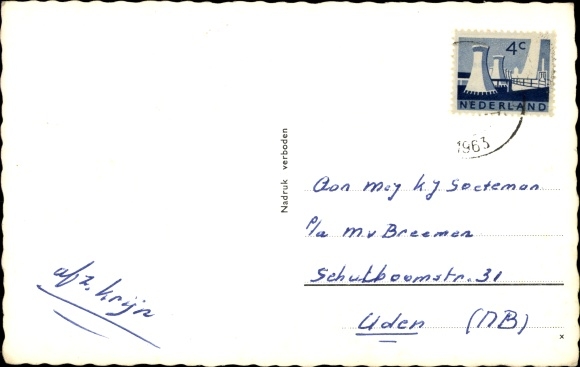 4c
NEDERLAND
1963
Nadruk verboden
Aan Mej K J Soeteman
P/a Mv Breemen
Schutboomstr. 31
Uden (NB)
afz. Krijn
x